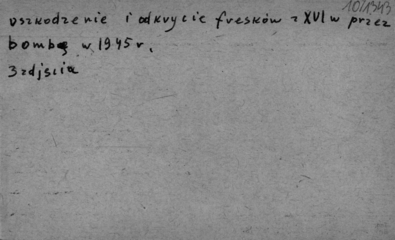 10/1343
uszkodzenie i odkrycie fresków z XVI w przez
bombę w 1945 r.
3 zdjścia